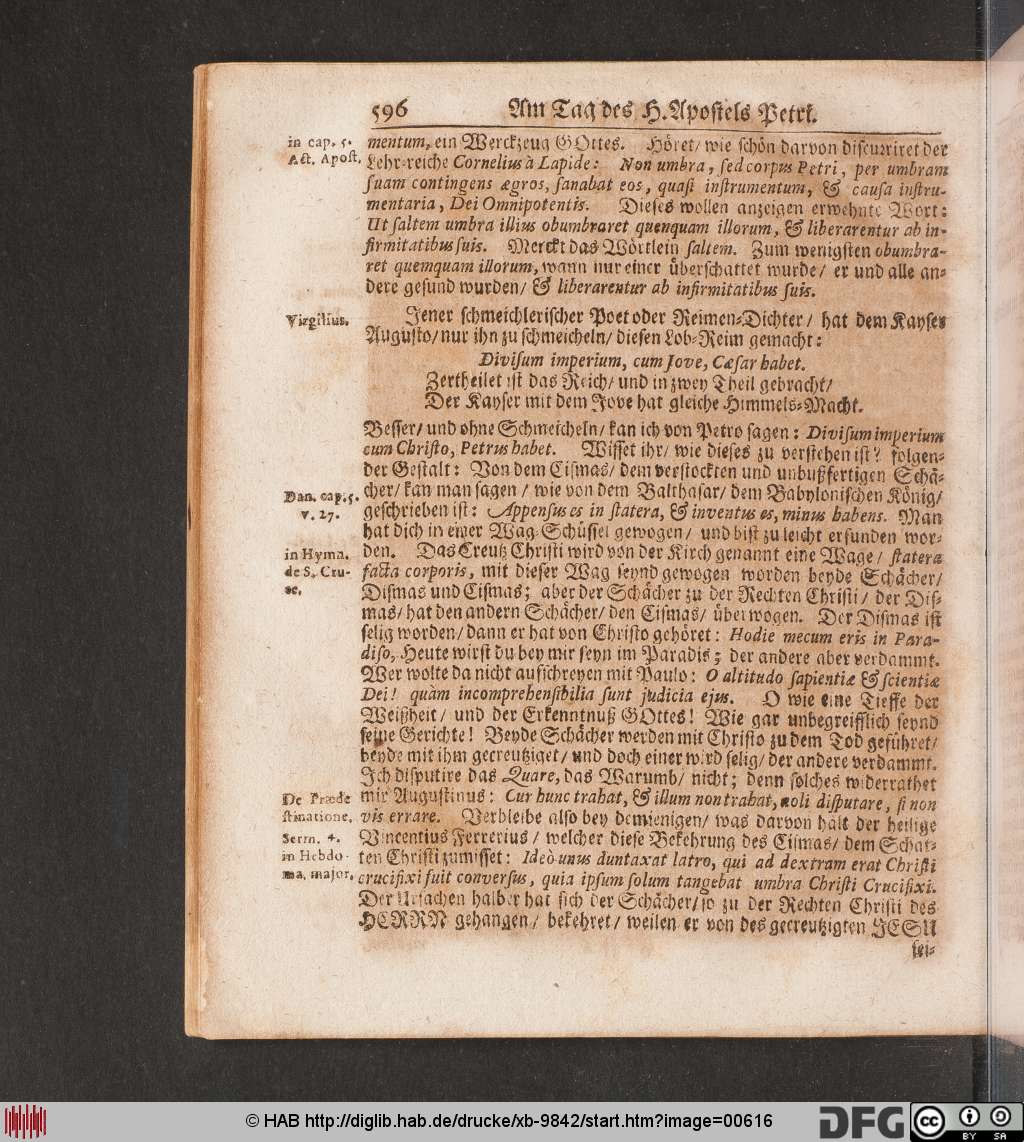 596 Am Tag des H. Apostels Petri.
in cap. 5.
Act. Apost.
mentum, ein Werckzeug GOttes. Höret/ wie schön darvon discurriret der
Lehr-reiche Cornelius à Lapide: Non umbra, sed corpus Petri, per umbram
suam contingens ægros, sanabat eos, quasi instrumentum, & causa instru-
mentaria, Dei Omnipotentis. Dieses wollen anzeigen erwehnte Wort:
Ut saltem umbra illius obumbraret quenquam illorum, & liberarentur ab in-
firmitatibus suis. Merckt das Wörtlein saltem. Zum wenigsten obumbra-
ret quemquam illorum, wann nur einer überschattet wurde/ er und alle an-
dere gesund wurden/ & liberarentur ab infirmitatibus suis.
Virgilius.
Jener schmeichlerischer Poet oder Reimen-Dichter/ hat dem Kayser
Augusto/ nur ihn zu schmeicheln/ diesen Lob-Reim gemacht:
Divisum imperium, cum Jove, Cæsar habet.
Zertheilet ist das Reich/ und in zwey Theil gebracht/
Der Kayser mit dem Jove hat gleiche Himmels-Macht.
Besser/ und ohne Schmeicheln/ kan ich von Petro sagen: Divisum imperium
cum Christo, Petrus habet. Wisset ihr/ wie dieses zu verstehen ist? folgen-
der Gestalt: Von dem Cismas/ dem verstockten und unbußfertigen Schä-
cher/ kan man sagen/ wie von dem Balthasar/ dem Babylonischen König/
Dan. cap. 5.
v. 27.
geschrieben ist: Appensus es in statera, & inventus es, minus habens. Man
hat dich in einer Wag-Schüssel gewogen/ und bist zu leicht erfunden wor-
in Hymn.
de S. Cru-
ce.
den. Das Creutz Christi wird von der Kirch genannt eine Wage/ statera
facta corporis, mit dieser Wag seynd gewogen worden beyde Schächer/
Dismas und Cismas; aber der Schächer zu der Rechten Christi/ der Dis-
mas/ hat den andern Schächer/ den Cismas/ überwogen. Der Dismas ist
selig worden/ dann er hat von Christo gehöret: Hodie mecum eris in Para-
diso, Heute wirst du bey mir seyn im Paradis; der andere aber verdammt.
Wer wolte da nicht aufschreyen mit Paulo: O altitudo sapientiæ & scientiæ
Dei! quàm incomprehensibilia sunt judicia ejus. O wie eine Tieffe der
Weißheit/ und der Erkenntnuß GOttes! Wie gar unbegreifflich seynd
seine Gerichte! Beyde Schächer werden mit Christo zu dem Tod geführet/
beyde mit ihm gecreutziget/ und doch einer wird selig/ der andere verdammt.
Ich disputire das Quare, das Warumb/ nicht; denn solches widerrathet
De Præde
stinatione.
mir Augustinus: Cur hunc trahat, & illum non trahat, noli disputare, si non
vis errare. Verbleibe also bey demienigen/ was darvon halt der heilige
Serm. 4.
in Hebdo-
ma, major.
Vincentius Ferrerius/ welcher diese Bekehrung des Cismas/ dem Schat-
ten Christi zumisset: Ideò unus duntaxat latro, qui ad dextram erat Christi
crucifixi fuit conversus, quia ipsum solum tangebat umbra Christi Crucifixi.
Der Ursachen halber hat sich der Schächer/ so zu der Rechten Christi des
HERRN gehangen/ bekehret/ weilen er von des gecreutzigten JESU
sei-
© HAB http://diglib.hab.de/drucke/xb-9842/start.htm?image=00616
DFG
cc
BY SA